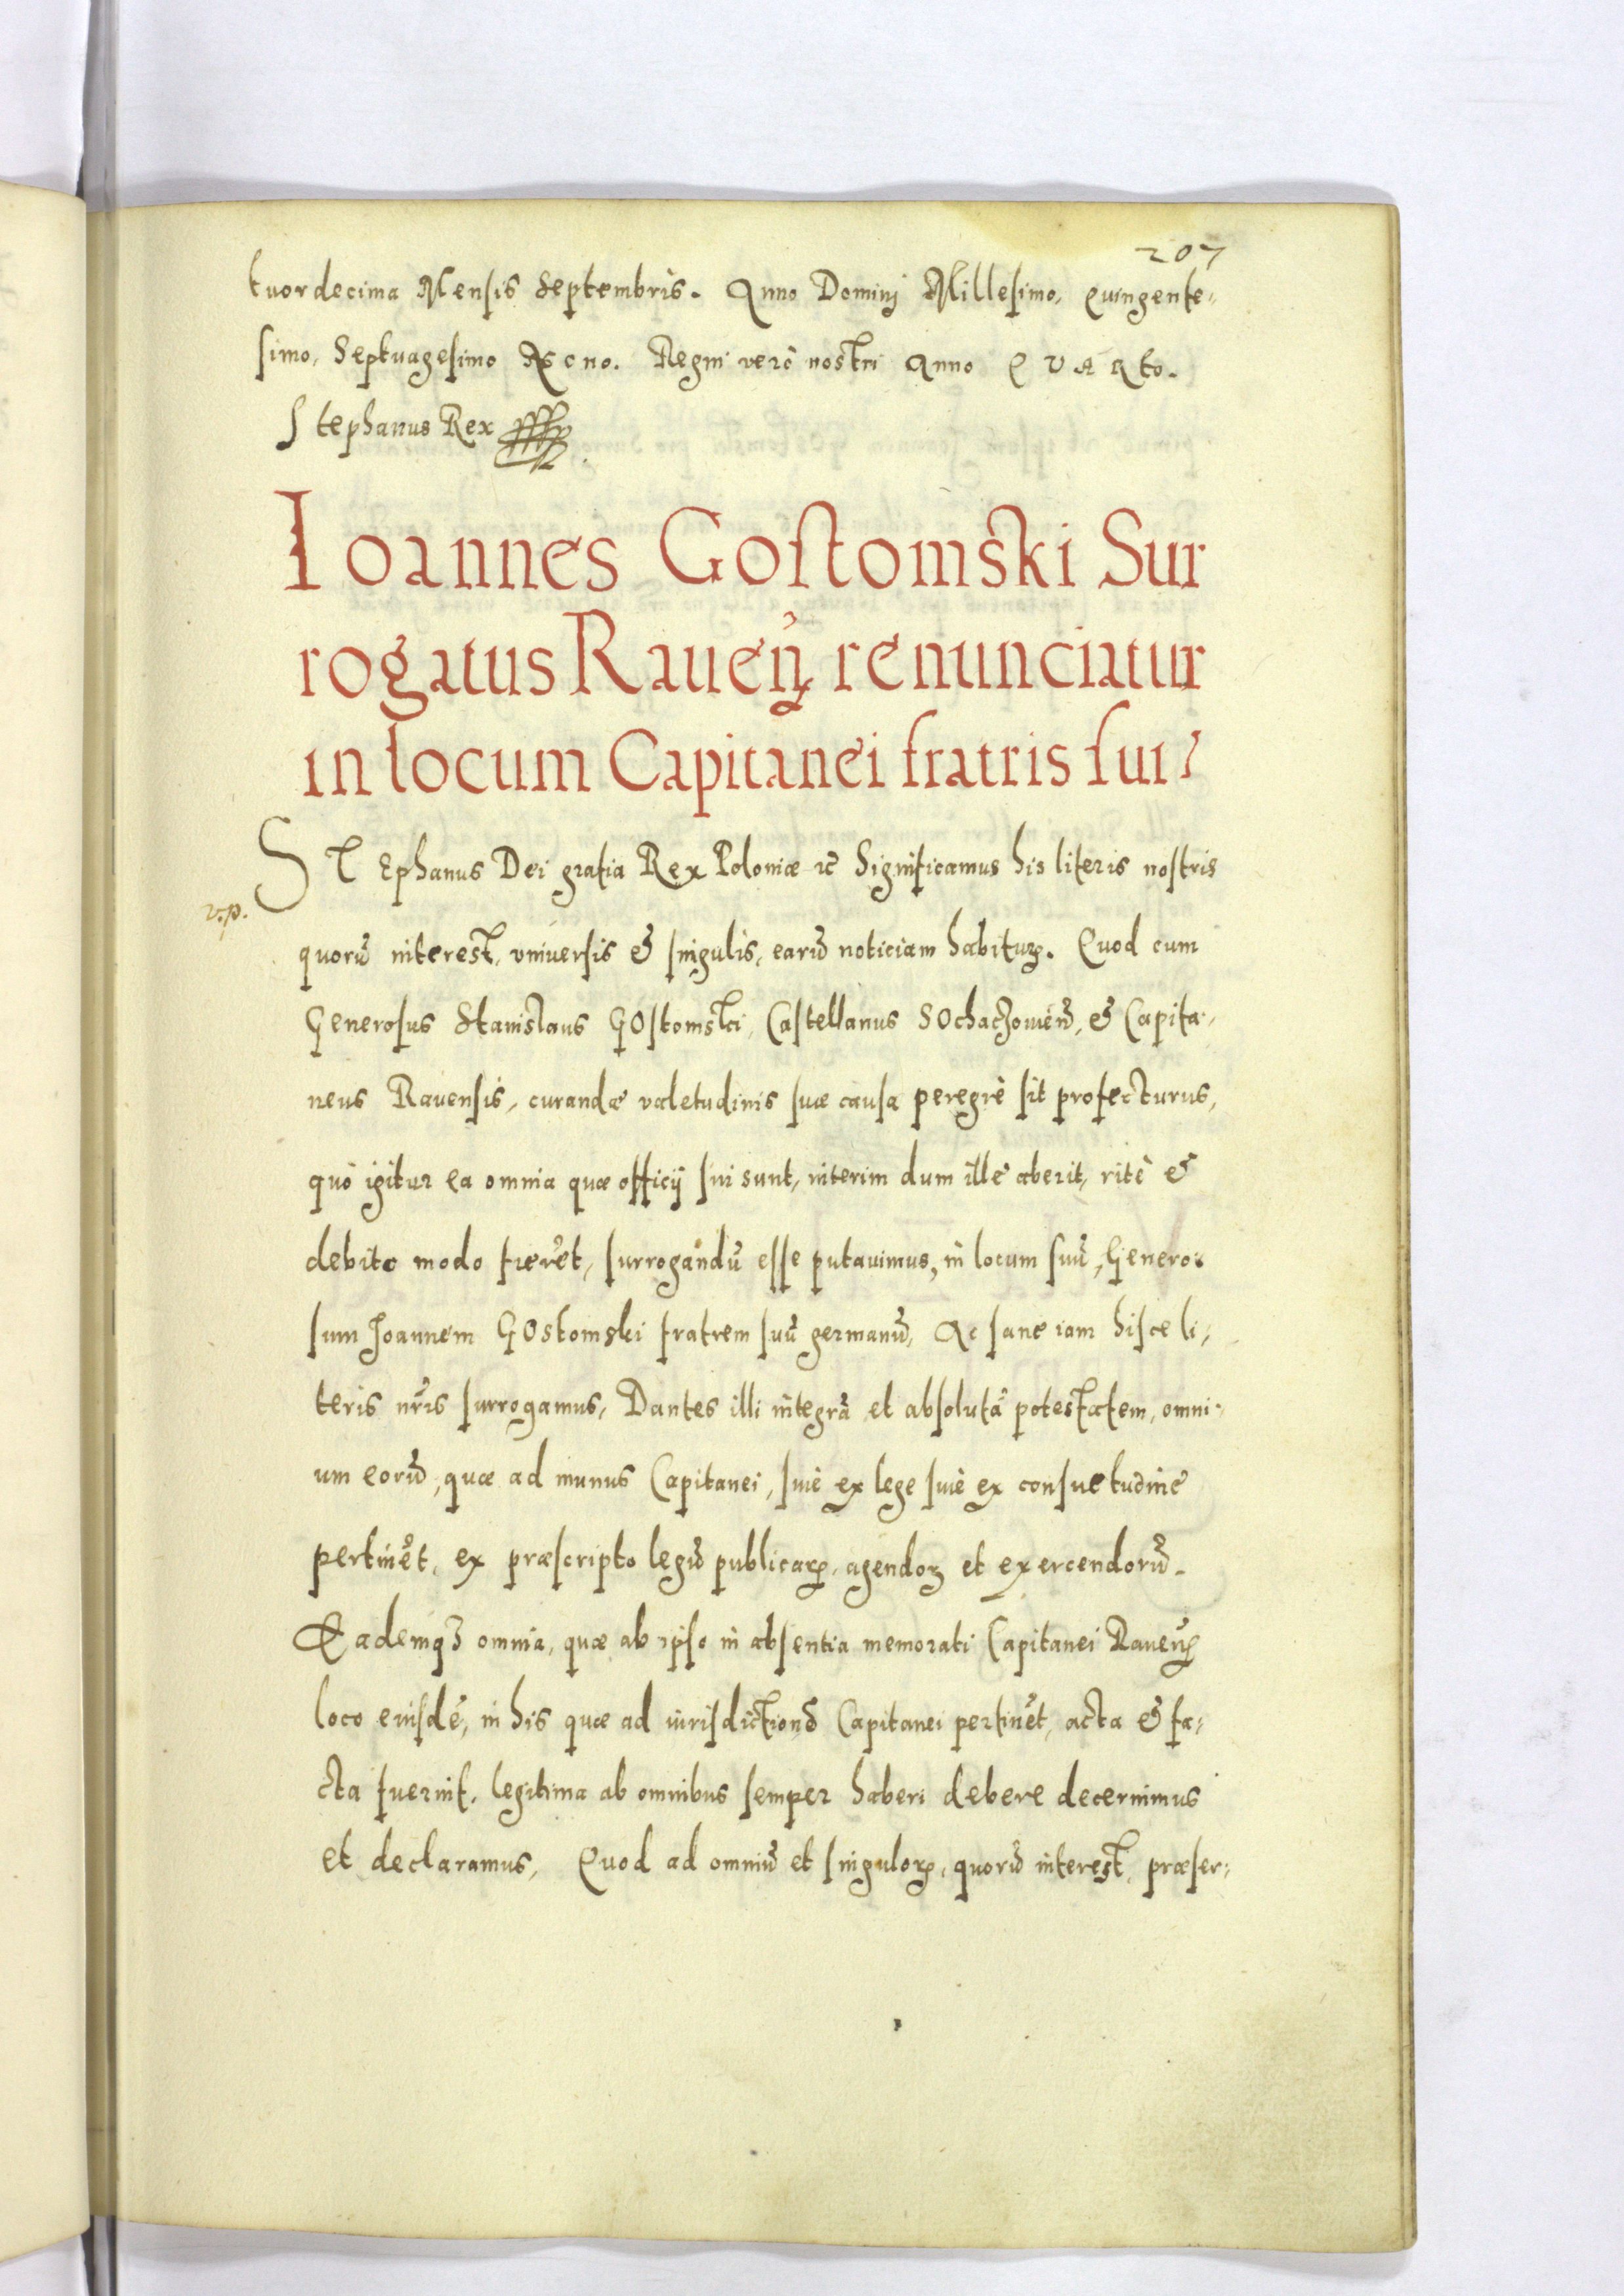 207
tuordecima Mensis Septembris. Anno Dominj Millesimo, Quingente-
simo, Septuagesimo Nono. Regni verò nostri Anno QVARto.
Stephanus Rex
Ioannes Gostomski Sur
rogatus Raueñ renunciatur
in locum Capitanei fratris sui
STEphanus Dei gratia Rex Poloniæ &c Significamus his literis nostris
v.p.
quorũ interest, vniuersis & singulis, earũ noticiam habituꝝ. Quod cum
Generosus Stanislaus GOstomski, Castellanus SOchaczouieñ, & Capita-
neus Rauensis, curandæ valetudinis suæ causa peregrè sit profecturus,
quò igitur ea omnia quæ officij sui sunt, interim dum ille aberit, ritè &
debito modo fierẽt, surrogandũ esse putauimus, in locum suũ, Genero-
sum Joannem GOstomski fratrem suũ germanũ, Ac sane iam hisce li-
teris nr̃is surrogamus, Dantes illi integrã et absolutã potestatem, omni-
um eorũ, quæ ad munus Capitanei, siue ex lege siue ex consuetudine
pertinẽt, ex præscripto legũ publicaꝝ, agendoꝝ et exercendorũ.
Eademqꝫ omnia, quæ ab ipso in absentia memorati Capitanei Raueñ
loco eiusdẽ, in his quæ ad iurisdictionẽ Capitanei pertinẽt, acta & fa-
cta fuerint, legitima ab omnibus semper haberi debere decernimus
et declaramus, Quod ad omniũ et singuloꝝ, quorũ interest, præser-